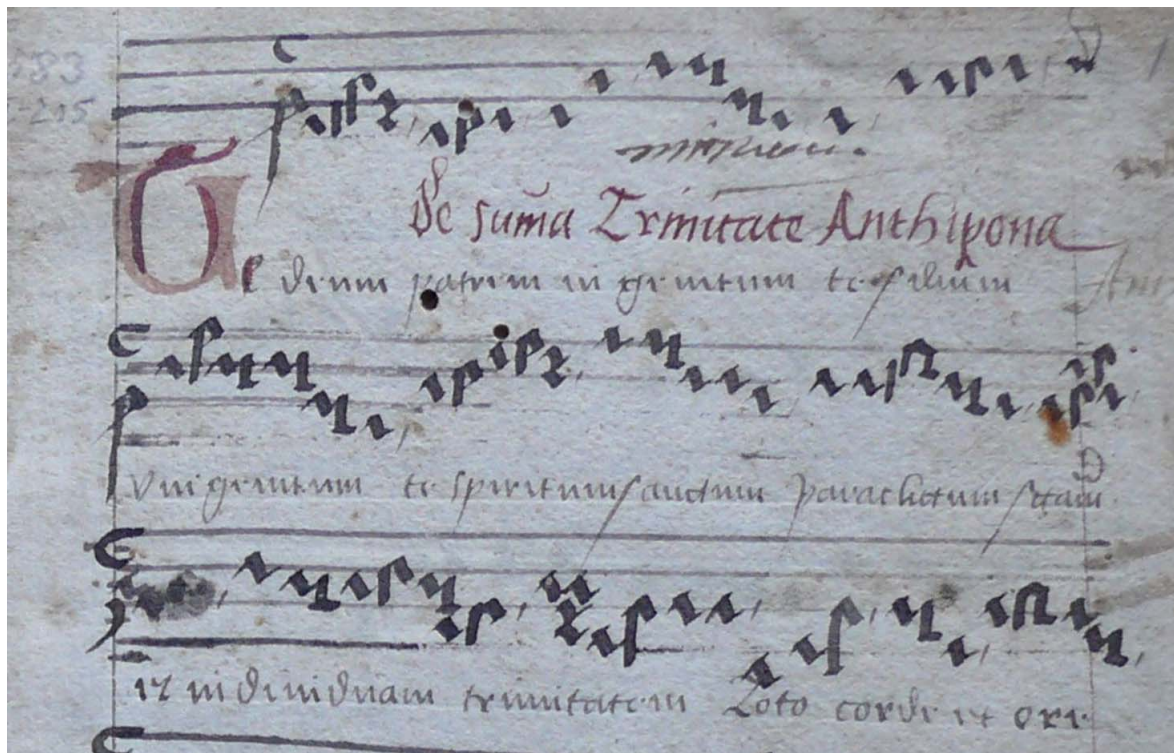 De suma Trinitate Anthipona
Te deum patrem in genitum te filium
Vnigenitum te spiritum sanctum paracletum sctam
et indiuiduam trinitatem Toto corde et ore